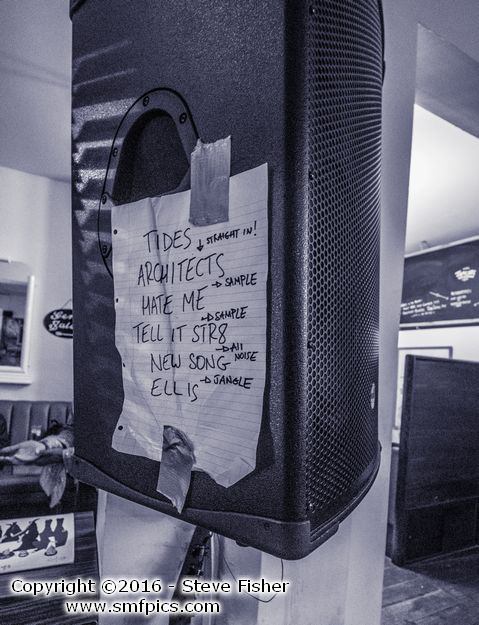 TIDES
↓ STRAIGHT IN!
ARCHITECTS
→ SAMPLE
HATE ME
→ SAMPLE
TELL IT STR8
→ All NOISE
NEW SONG
→ JANGLE
ELLIS
Copyright ©2016 - Steve Fisher
www.smfpics.com